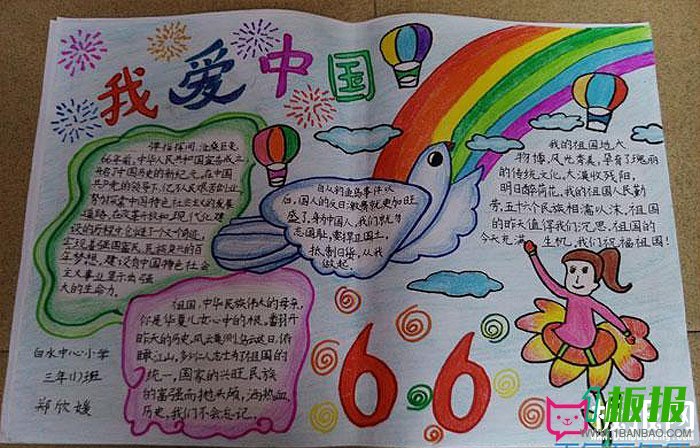 我爱中国
弹指挥间,沧桑巨变
66年前,中华人民共和国宣告成立
开启了中国历史的新纪元,在中国
共产党的领导下,亿万人民艰苦创业,
努力探索中国特色社会主义的发展
道路,在改革开放和现代化建
设的历程中创造了一个又一个奇迹,
实现着强国富民,民族复兴的百
年梦想,建设有中国特色社会
主义事业显示出强
大的生命力。
自从钓鱼岛事件以
后,国人的反日激费就更加旺
盛了,身为中国人,我们就勿
忘国耻,要捍卫国土,
抵制日货,从我
做起。
我的祖国地大
物博,风光秀美,孕育了瑰丽
的传统文化,大漠收残阳,
明日醉荷花,我的祖国人民勤
劳,五十六个民族相濡以沫,祖国
的昨天值得我们沉思,祖国的
今天充满生机,我们祝福祖国!
祖国,中华民族伟大的母亲,
你是华夏儿女心中的根。翻开
昨天的历史,
瞰江山,多少仁人志士为了祖国的
统一,国家的兴旺民族
的富强而抛头颅,洒热血,
历史,我们不会忘记。
白水中心小学
三年(1)班
郑欣媛
66
板报
WWW.1BANBAO.COM